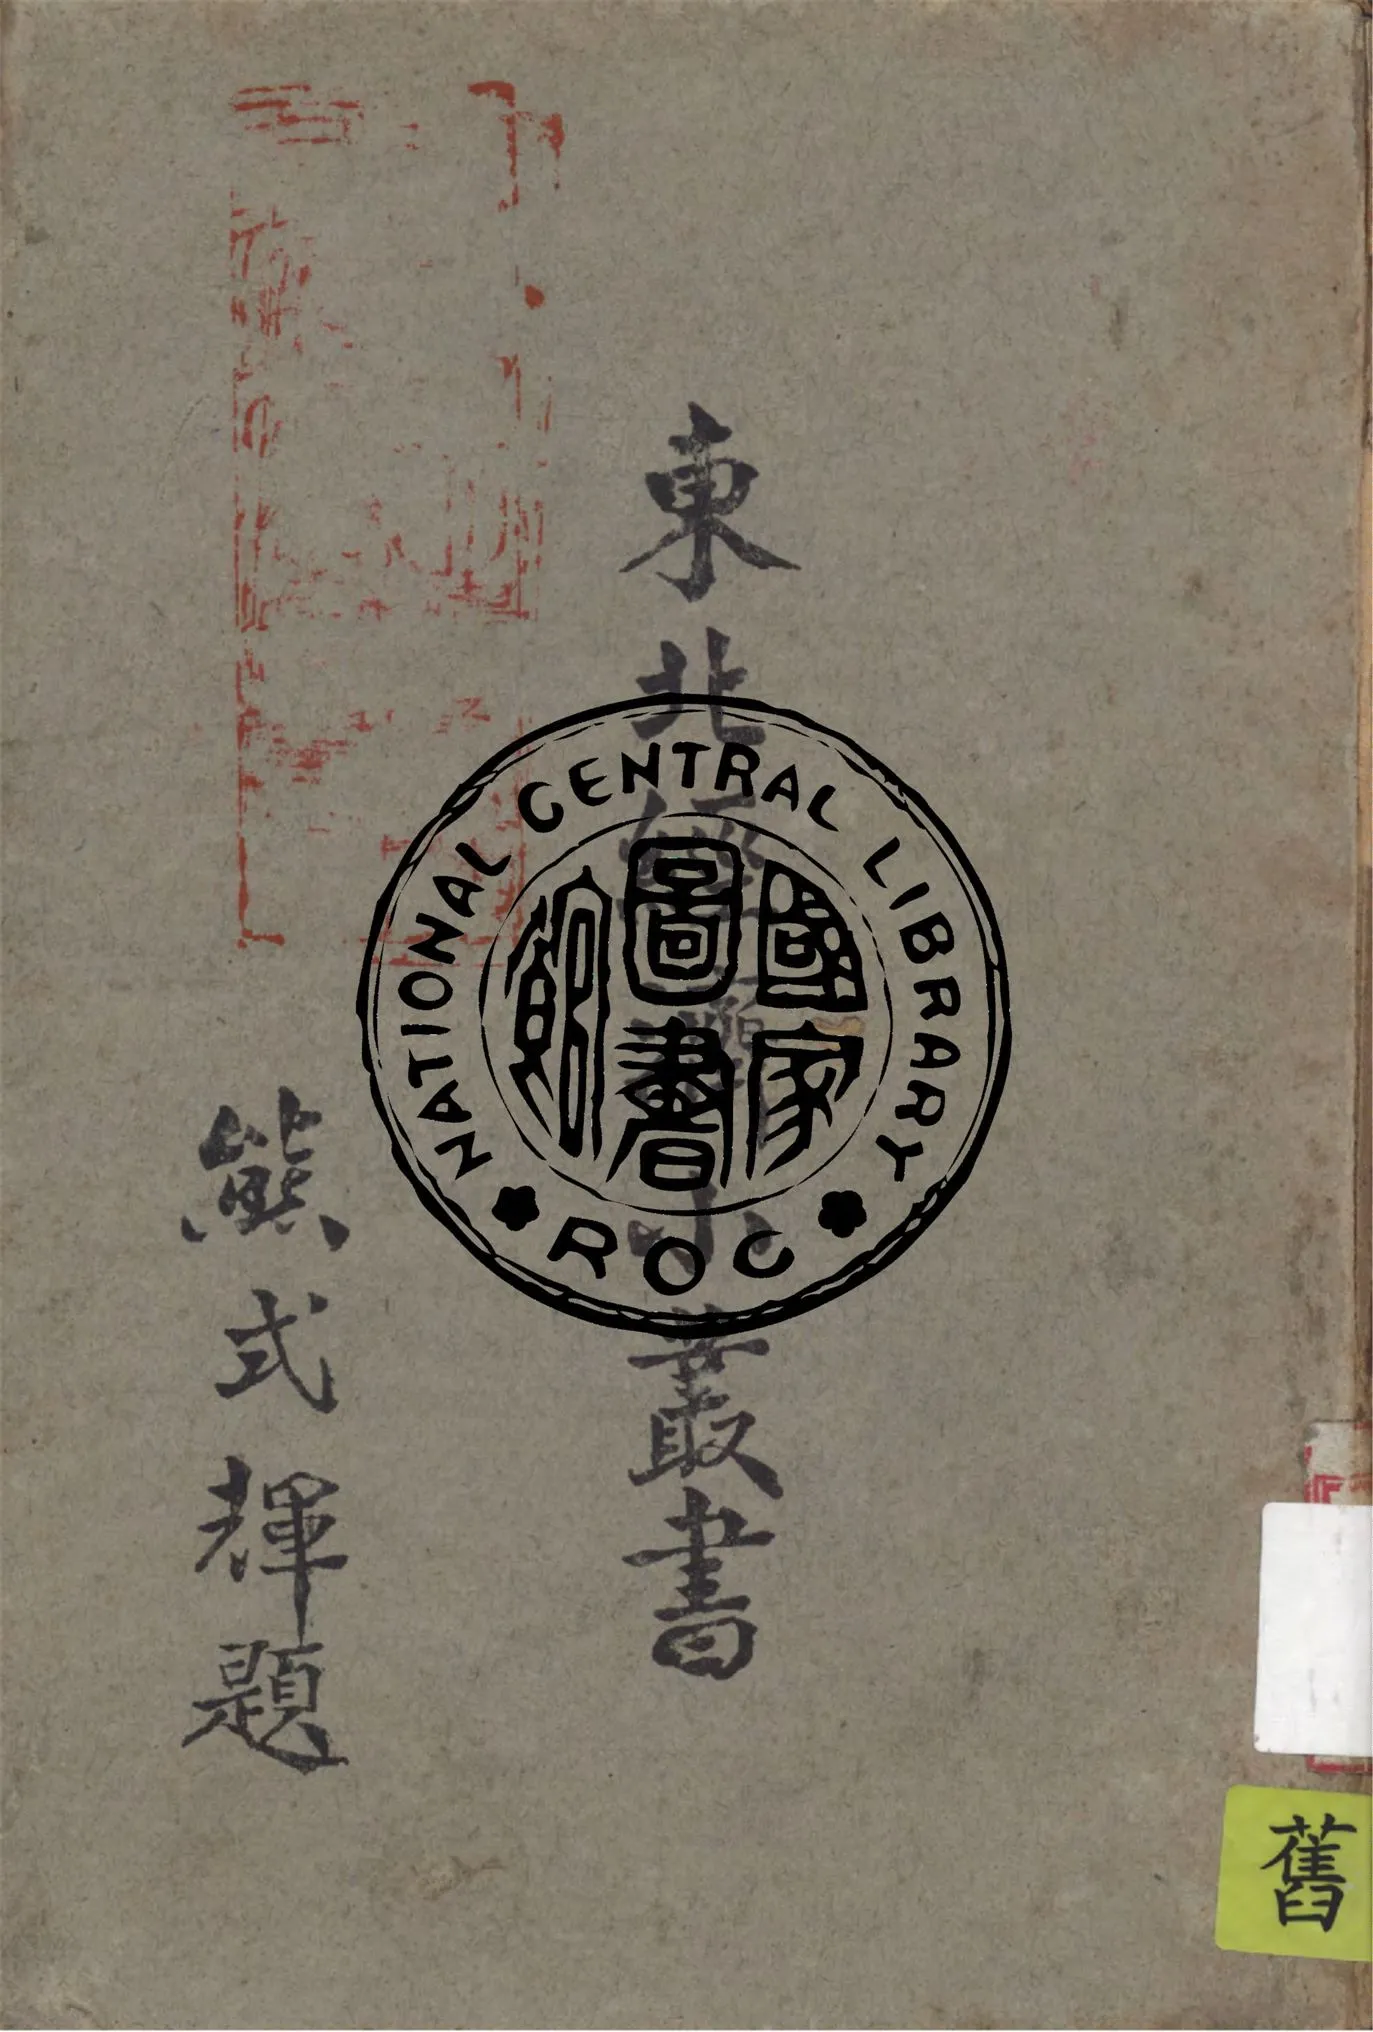 東北經濟小叢書
熊式輝題
NATIONAL CENTRAL LIBRARY
國家
圖書
館
ROC
舊